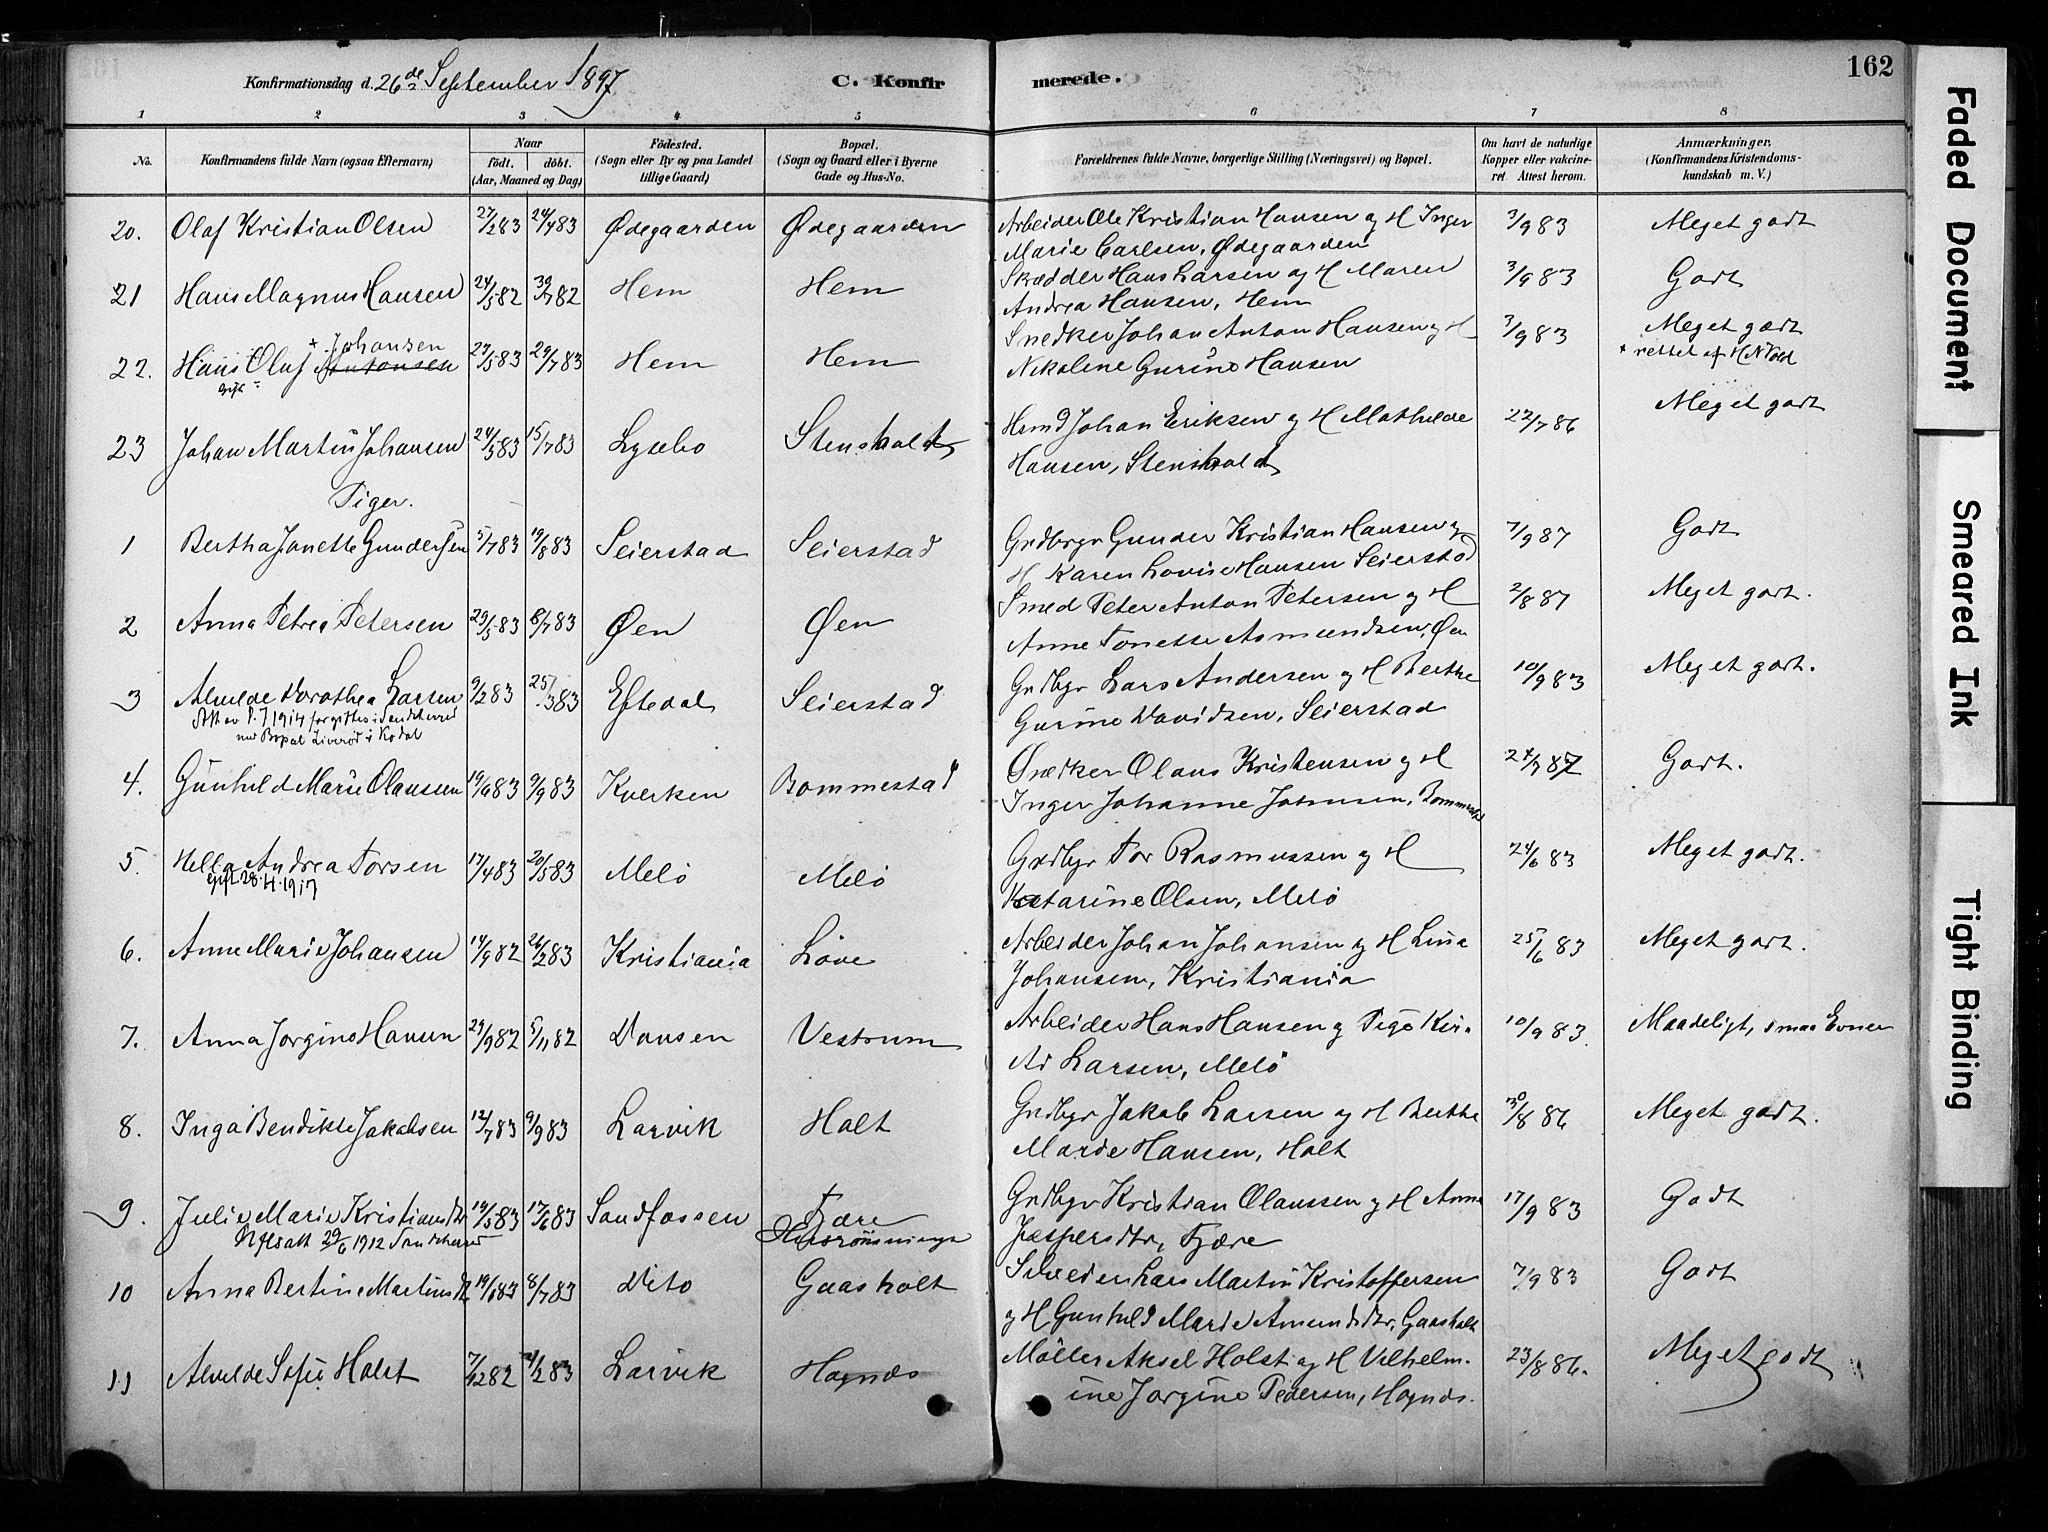 Konfirmationsdag d. 26de September 1897 C. Konfir merede. 162
1 2 3 4 5 6 7 8
No. Konfirmandens fulde Navn (ogsaa Efternavn) Naar født. døbt. (Aar, Maaned og Dag) Fødested. (Sogn eller By og paa Landet tillige Gaard) Bopæl. (Sogn og Gaard eller i Byerne Gade og Hus-No. Forældrenes fulde Navne, borgerlige Stilling (Næringsvei) og Bopæl. Om havt de naturlige Kopper eller vakcineret. Attest herom. Anmærkninger. (Konfirmandens Kristendomskundskab m. V.)
20. Olaf Kristian Olsen 27/2 83 24/4 83 Ødegaarden Ødegaarden Arbeider Ole Kristian Hansen og H Inger 3/9 83 Meget godt
Marie Carlsen, Ødegaarden
21 Hans Magnus Hansen 24/5 82 30/7 82 Hem Hem Skrædder Hans Larsen og H Maren 3/9 83 Godt
Andrea Hansen, Hem
+ Johansen
22. Hans Oluf Antonsen 23/5 83 29/7 83 Hem Hem Snedker Johan Anton Hansen og H 3/9 83 Meget godt
Gift + rettet af H N Vold
Nikoline Gurine Hansen
23 Johan Martin Johansen 24/5 83 15/7 83 Lysebo Stensholdt Hsmd Johan Eriksen og H Mathilde 22/7 86 Meget godt
Hansen, Stensholdt
Piger.
1 Bertha Janette Gundersen 5/7 83 19/8 83 Seierstad Seierstad Grdbrgr Gunder Kristian Hansen og 7/9 87 Godt
H Karen Lovise Hansen Seierstad
2 Anna Petrea Petersen 29/5 83 8/7 83 Øen Øen Smed Peter Anton Petersen og H 2/8 87 Meget godt.
Anne Tonette Asmundsen, Øen
3 Alvilde Dorothea Larsen 9/2 83 25/3 83 Eftedal Seierstad Grdbgr Lars Andersen og H Berthe 10/9 83 Meget godt.
Gurine Davidsen, Seierstad
4. Gunhild Marie Olaussen 19/6 83 9/9 83 Kverken Bommestad Snedker Olaus Kristensen og H 24/7 87 Godt.
Inger Johanne Johnsen, Bommestad
5. Hella Andrea Torsen 17/4 83 20/5 83 Melø Melø Grdbgr Tor Rasmussen og H 24/6 83 Meget godt.
Gift 28.4.1917
Katarine Olsen, Melø
6. Anne Marie Johansen 14/9 82 26/2 83 Kristiania Løve Arbeider Johan Johansen og H Lina 25/6 83 Meget godt.
Johansen, Kristiania
7. Anna Jorgine Hansen 29/9 82 5/11 82 Vestrum Arbeider Hans Hansen og Pige 10/9 83. Maadeligt, smaa Evner
Larsen, Melø
8. Inga Bendikte Jakobsen 12/7 83 9/9 83 Larvik Holt Grdbgr Jakob Larsen og H Berthe 30/8 86 Meget godt.
Marie Hansen, Holt
9. Julie Marie Kristiansdtr 14/5 83 17/6 83 Sandfossen Fjære Grdbgr Kristian Olaussen og H Anna 17/9 83 Godt
Jespersdtr, Fjære
10 Anna Bertine Martinsdtr 19/1 83 8/7 83 Dito Gaasholt Lars Martin Kristoffersen 7/9 83 Godt
og H Gunhild Marie Amundsdtr, Gaasholt
11 Alvilde Sofie Holst 7/12 82 4/2 83 Larvik Hognes Møller Aksel Holst og H Vilhelm- 23/8 86. Meget godt
ine Jorgine Pedersen, Hognes.
Faded Document
Smeared Ink
Tight Binding